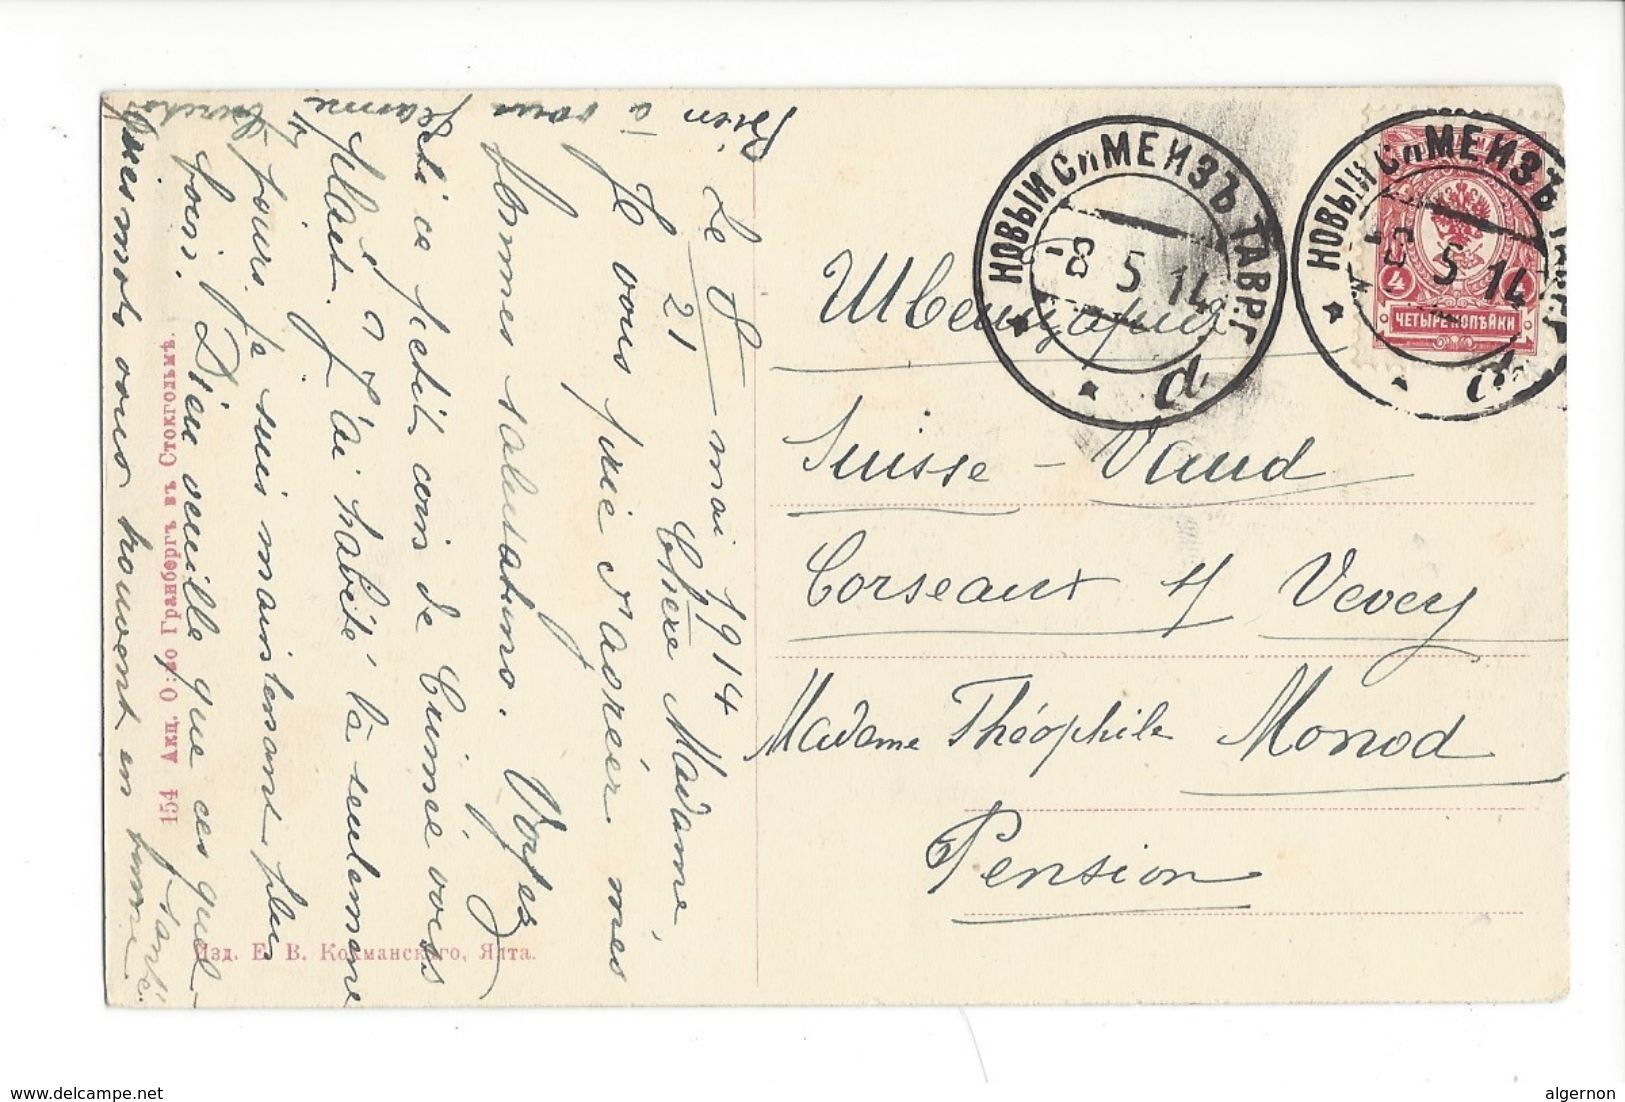 Le 8/21 mai 1914
Chère Madame,
Je vous prie d'agréer mes
bonnes salutations. Voyez
ce petit coin de Crimée vous
plait. J'ai habité là seulement
jours. Je suis maintenant plus
loin. Dieu veuille que ces quel-
ques mots vous trouvent en bonne
santé.
Bien à vous Jeanne
НОВЫЙ СпМЕИЗЪ ТАВР.Г
8 5 14
d
НОВЫЙ СпМЕИЗЪ ТАВР.Г
8 5 14
4
ЧЕТЫРЕ КОПѢЙКИ
Швейцария
Suisse - Vaud
Corseaux s/ Vevey
Madame Théophile Monod
Pension
154 Акц. О:во Гранбергъ въ Стокгольмѣ.
Изд. Е. В. Кохманскаго, Ялта.
www.delcampe.net
algernon